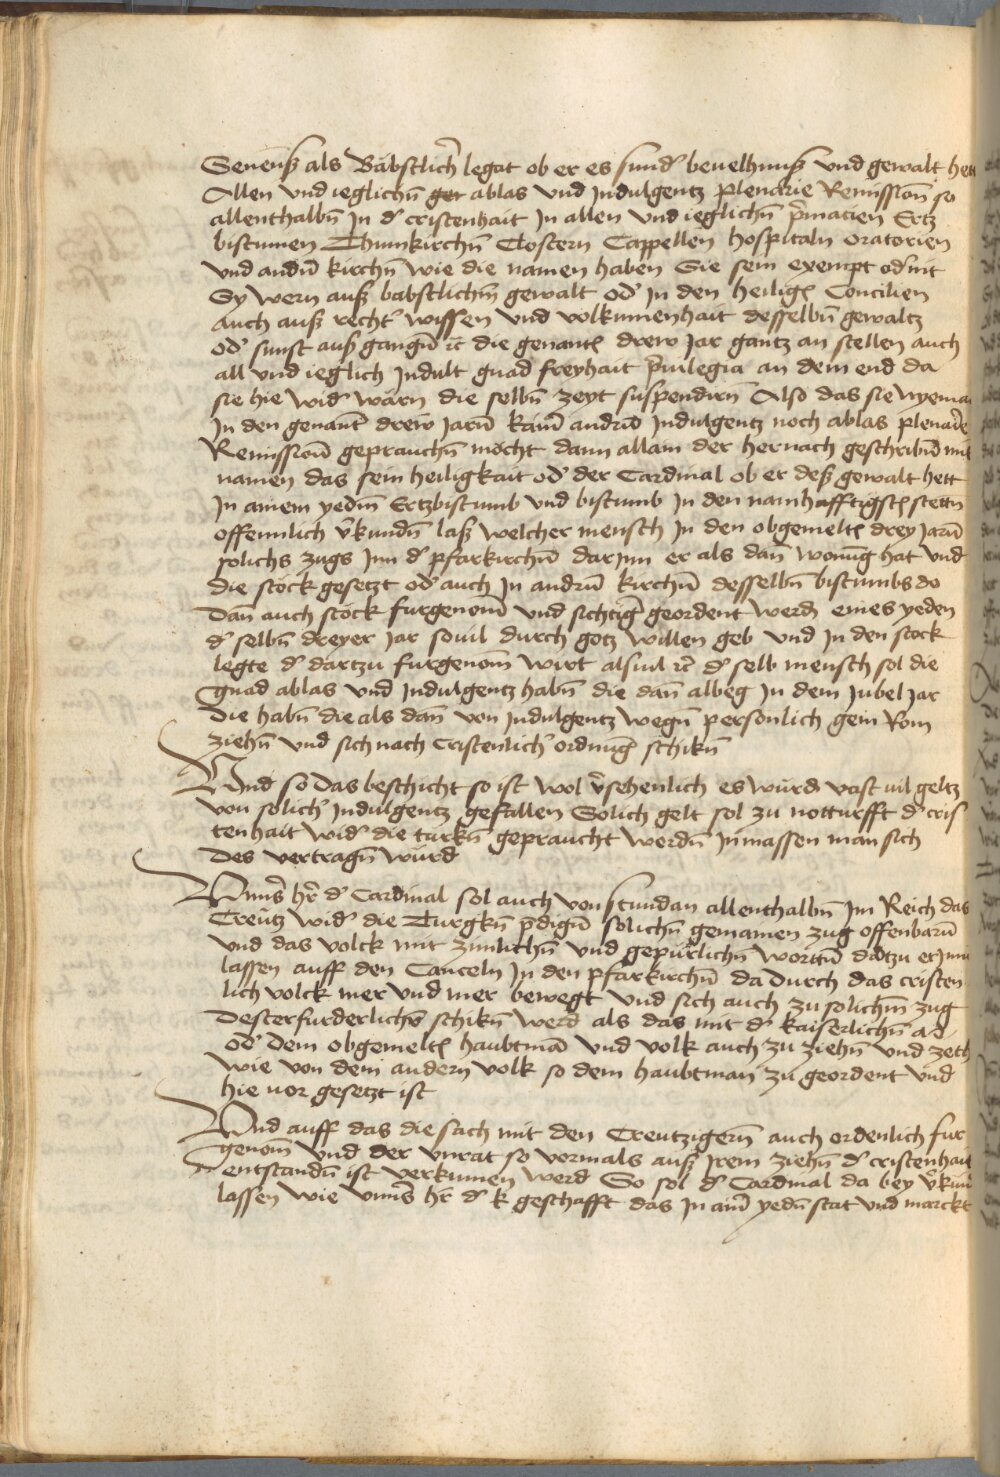 Senenß als Båbstlicher legat ob er es sund' beuelhnuß vnd gewalt hett
Allen vnd ieglichñ ger ablas vnd Jndulgentz plenarie Remissioñ so
allenthalbñ Jn d' cristenhait Jn allen vnd ieglichñ p̃matien Ertz
bistumen Thumkirchñ Clostern Cappellen hospitaln oratorien
vnd andñ kirchñ wie die namen haben Sie sein exempt od' nit
Sy wern auß babstlichm̃ gewalt od' Jn den heilig̃ Concilien
auch auß recht' wissen vnd volkumenhait desselbñ gewaltz
od' sunst auß gangñ rc̃ die genant̃ drew Jar gantz an stellen auch
all vnd ieglich Jndult gnad freyhait p̃uilegia an dem end da
sie hie wid' warn die selbñ zeyt suspendirñ Also das sie nyeman
Jn den genant̃ drew Jarñ kainr̃ andrñ Jndulgentz noch ablas plenarie
Remissioñ geprauchñ möcht dann allain der hernach geschribñ mit
namen das sein heiligkait od' der Cardinal ob er deß gewalt hett
Jn ainem yedm̃ Ertzbistumb vnd bistumb Jn den namhafftigst̃ stettñ
offennlich v̓kundñ laß welcher mensch Jn den obgemelt̃ drey Jarñ
solichs zugs Jnn d' pfarkirchñ darjnn er als dañ wonũg hat vnd
die stöck gesetzt od' auch Jn andrñ kirchñ desselbñ bistumbs do
dañ auch stöck furgenom̃ vnd sichtig̃ geordent werd̃ eines yeden
d' selbñ dreyer Jar souil durch gotz willen geb vnd Jn den stock
legte d' dartzu furgenom̃ wirt alsuil rc̃ d' selb mensch sol die
gnad ablas vnd Jndulgentz habñ die dañ albeg Jn dem Jubel Jar
die habñ die als dañ von Jndulgentz wegñ personlich gein Rom
ziehñ vnd sich nach cristenlich' ordnũg schikñ
Vnd so das beschicht so ist wol v̓sehenlich es wurd vast uil geltz
von solich' Jndulgentz gefallen Solich gelt sol zu notturfft d' cris
tenhait wid' die turkñ gepraucht werdñ Jnmassen man sich
des vertragñ wurd
Vnns̃ hr̃ d' Cardinal sol auch von stundan allenthalbñ Jm Reich das
Creutz wid' die Turgkñ p̃digñ solichñ gemainen zug offenbarñ
vnd das volck mit zimlichñ vnd gepurlichñ worttñ datzu er
lassen auff den Canceln Jn den pfarkirchñ da durch das cristen
lich volck mer vnd mer bewegt vnd sich auch zu solichm̃ zug
desterfurderlichr̃ schikñ werd als das mit d' kaiserlichñ
od' dem obgemelt̃ haubtmañ vnd volk auch zu ziehñ vnd
wie von dem andern volk so dem haubtman zu geordent vnd
hie uor gesetzt ist
Vnd auff das die sach mit den Creutzigerñ auch ordenlich fur
genom̃ vnd der vnrat so vormals auß Jrem ziehñ d' cristenhait
entstandñ ist verkumen werd So sol d' Cardinal da bey v̓kund
lassen wie vnns̃ hr̃ d' k geschafft das Jn ainr̃ yedñ stat vnd marckt